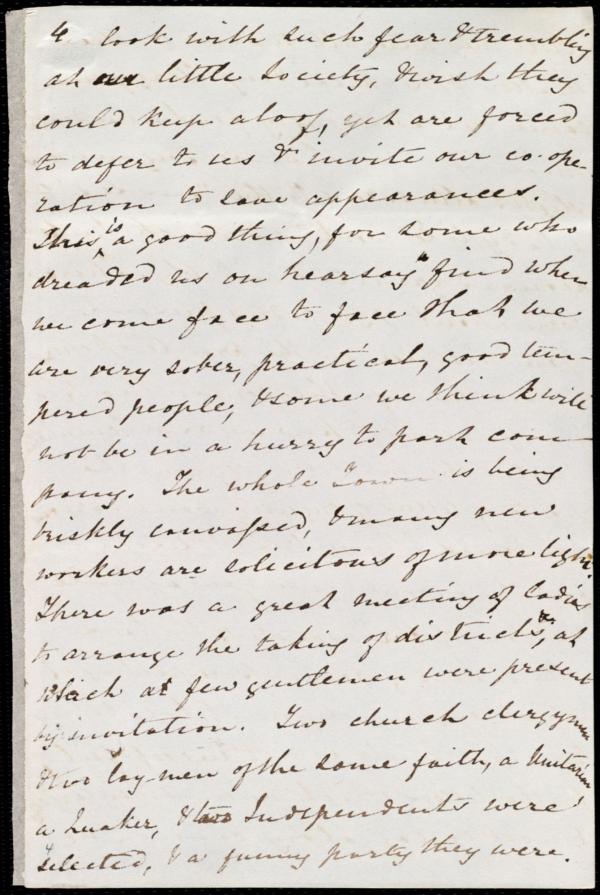 4 look with such fear & trembling
at our little Society, & wish they
could keep aloof, yet are forced
to defer to us & invite our co-ope-
ration to save appearances.
This is a good thing, for some who
dreaded us on hearsay find when
we come face to face that we
are very sober, practical, good tem-
pered people, & some we think will
not be in a hurry to part com-
pany. The whole Town is being
briskly canvassed, & many new
workers are solicitous of more light.
There was a great meeting of ladies
to arrange the taking of districts, &c, at
which a few gentlemen were present
by invitation. Two church clergymen
& two laymen of the same faith, a Unitarian
a Quaker, & two Independents were
selected, & a funny party they were.